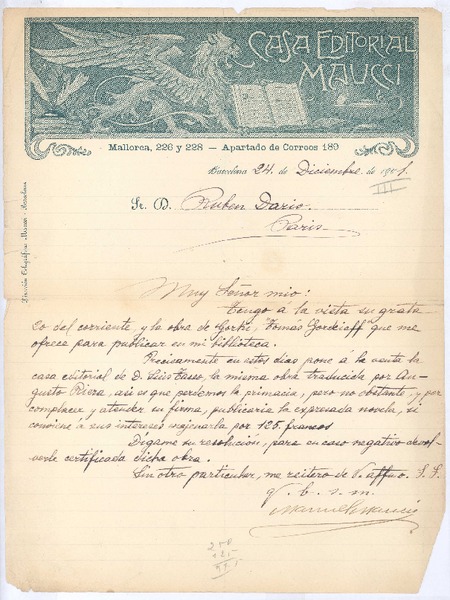 CASA EDITORIAL
MAUCCI
Mallorca, 226 y 228 — Apartado de Correos 189
Barcelona 24 de Diciembre de 1901.
III
Dirección Telegráfica: Maucci - Barcelona
Sr. D. Ruben Dario.
Paris.
Muy Señor mio:
Tengo á la vista su grata
del corriente, y la obra de Gorki, Tomas Gordeieff que me
ofrece para publicar en mi biblioteca.
Precisamente en estos dias pone á la venta la
casa editorial de D. Luis Tasso, la misma obra traducida por Au-
gusto Riera, asi es que perdemos la primacia, pero no obstante, y por
complacer y atender su firma, publicaria la expresada novela, si
conviene á sus intereses enajenarla por 125 francos
Digame su resolucion, para en caso negativo devol-
verle certificada dicha obra.
Sin otro particular, me reitero de V. affmo. S. S.
q. b. s. m.
Manuel Maucci
250
125